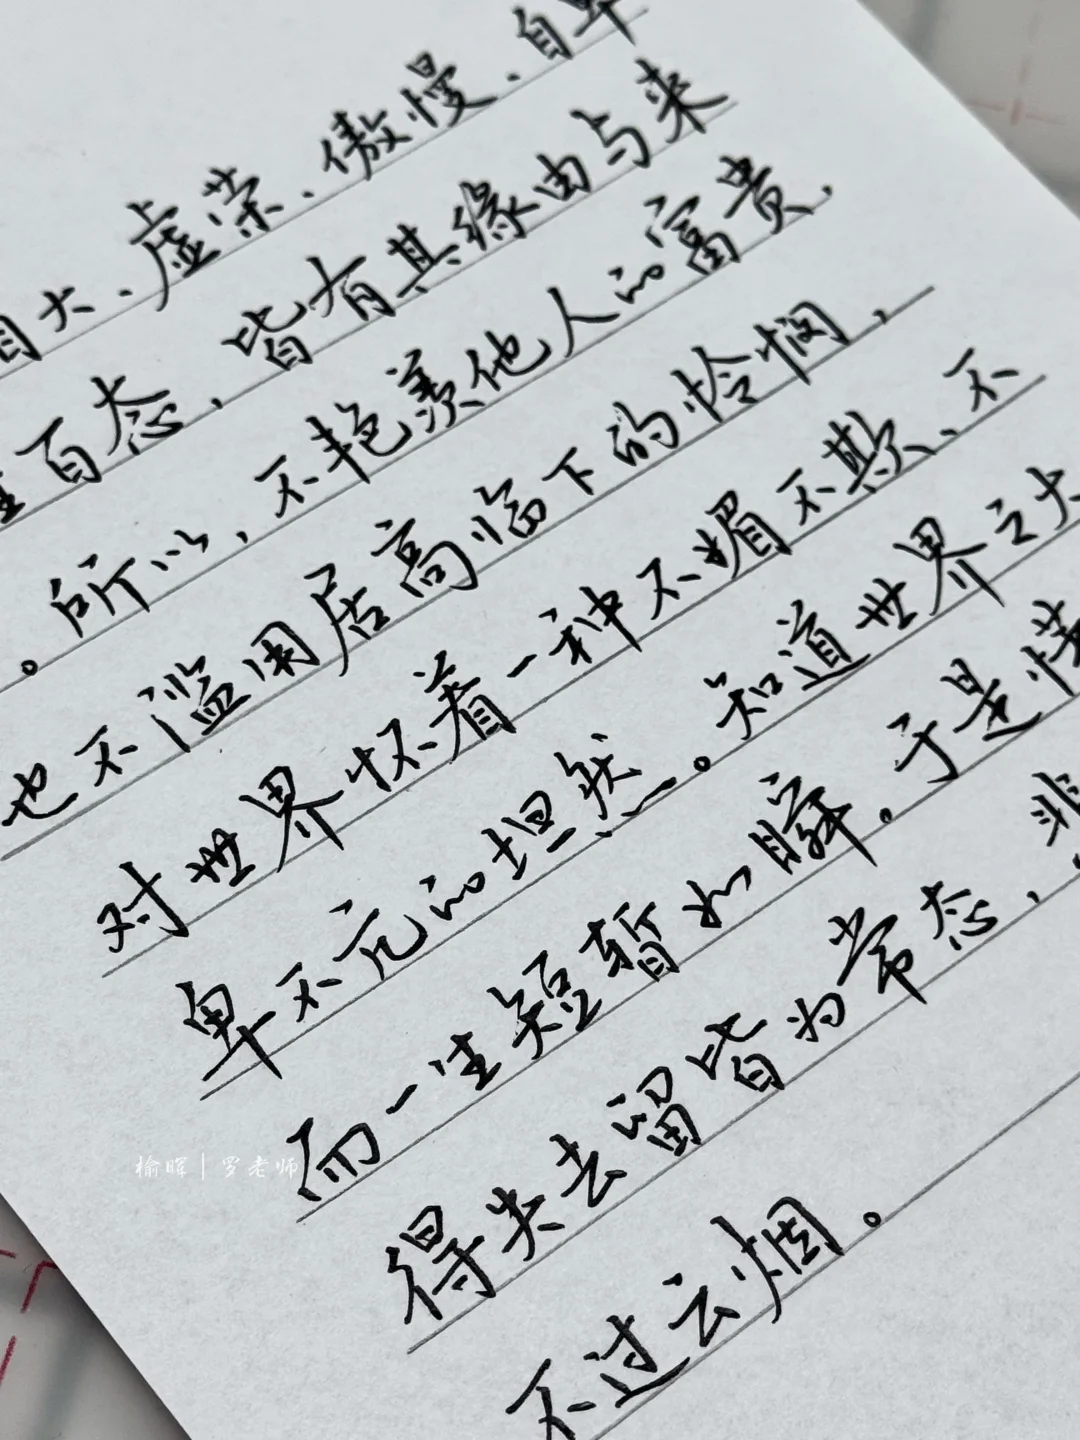 自大、虚荣、傲慢、自卑
百态，皆有其缘由与来
。所以，不艳羡他人的富贵，
也不滥用居高临下的怜悯，
对世界怀着一种不媚不欺、不
卑不亢的坦然。知道世界之大
而一生短暂如瞬。于是情
得失去留皆为常态，非
不过云烟。
榆晖｜罗老师